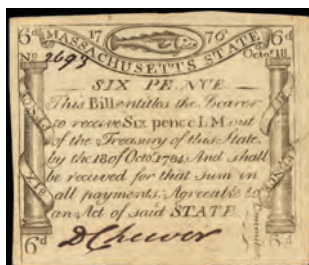 6d 17 76 6d
MASSACHUSETTS STATE
No 2693 Octor 18
SIX PENCE
This Bill entitles the Bearer
to receive Six pence L M out
of the Treasury of this State
by the 18 of Octor 1784 And shall
be received for that Sum in
all payments Agreeable to
an Act of said STATE
D Cheever
Committee
SIX PENCE
6d 6d